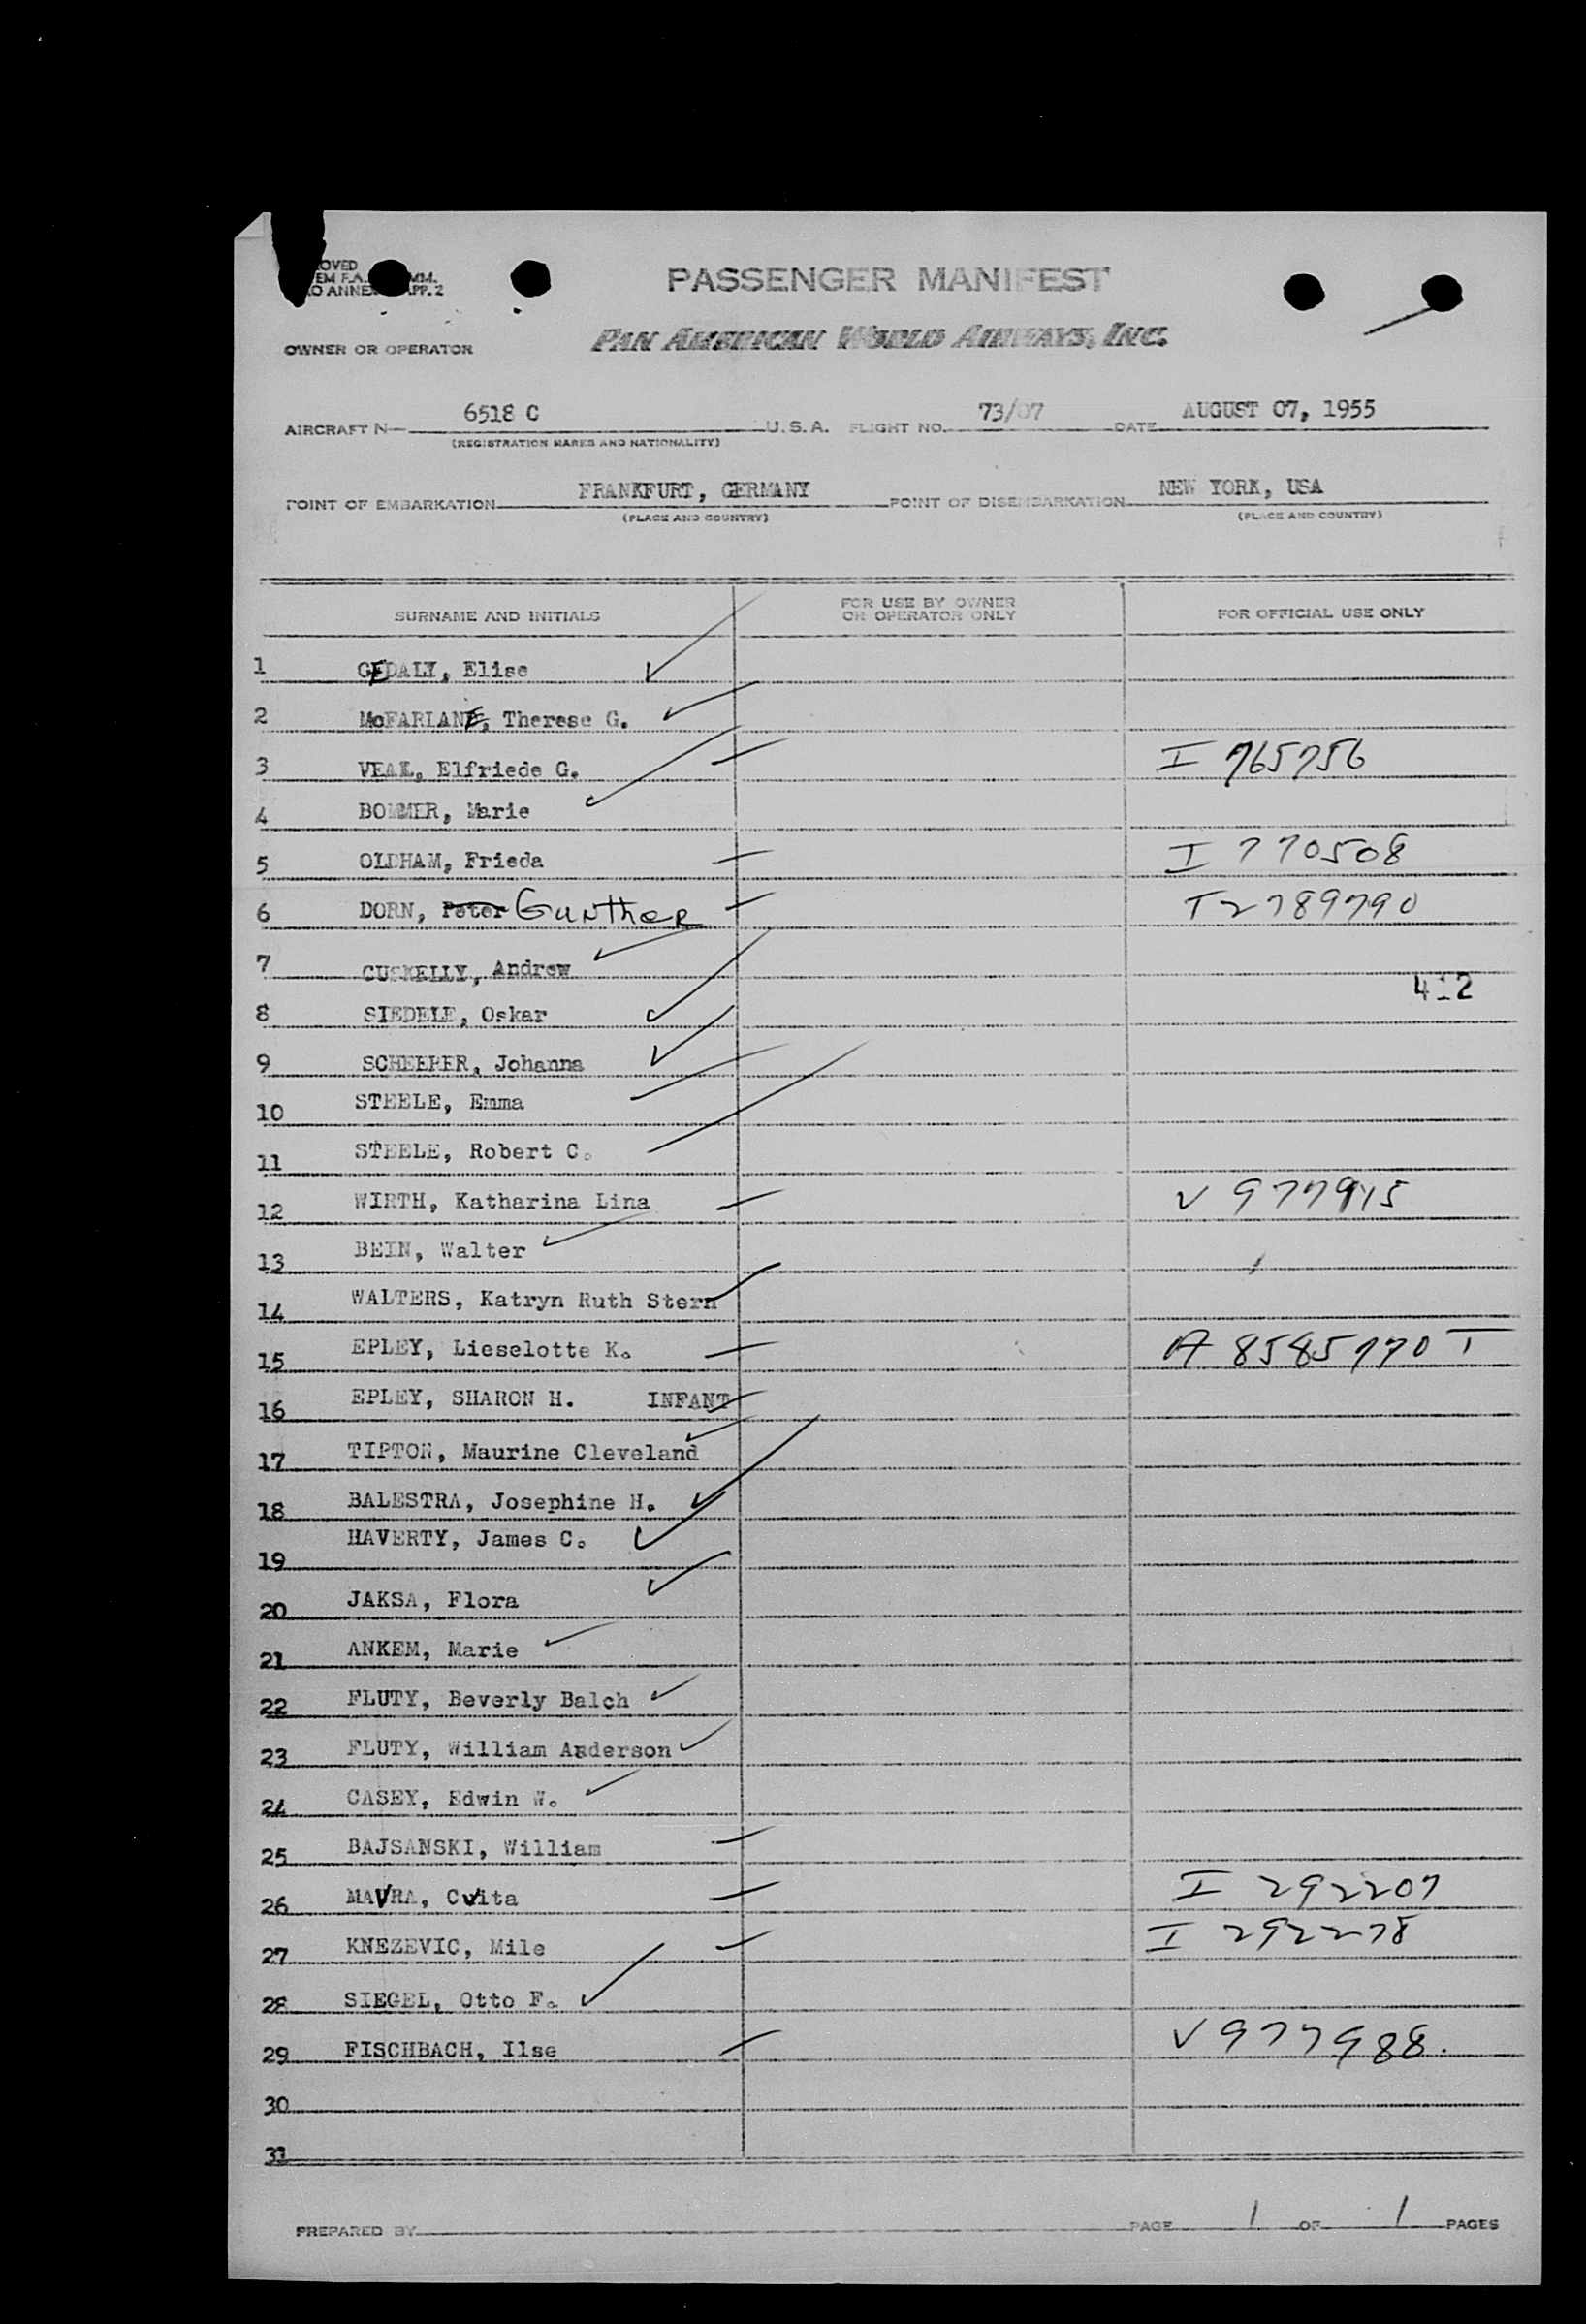 OVED
EM F.A. MM.
O ANNEX APP. 2
PASSENGER MANIFEST
OWNER OR OPERATOR PAN AMERICAN WORLD AIRWAYS, INC.
AIRCRAFT N 6518 C U.S.A. FLIGHT NO. 73/07 DATE AUGUST 07, 1955
(REGISTRATION MARKS AND NATIONALITY)
POINT OF EMBARKATION FRANKFURT, GERMANY POINT OF DISEMBARKATION NEW YORK, USA
(PLACE AND COUNTRY) (PLACE AND COUNTRY)
SURNAME AND INITIALS FOR USE BY OWNER OR OPERATOR ONLY FOR OFFICIAL USE ONLY
1 GEDALY, Elise
2 McFARLANE, Therese G.
3 VEAL, Elfriede G. I 765756
4 BOMMER, Marie
5 OLDHAM, Frieda I 770508
6 DORN, Peter Gunther T2789790
7 CUSKELLY, Andrew
412
8 SIEDELE, Oskar
9 SCHEERER, Johanna
10 STEELE, Emma
11 STEELE, Robert C.
12 WIRTH, Katharina Lina V 977915
13 BEIN, Walter
14 WALTERS, Katryn Ruth Stern
15 EPLEY, Lieselotte K. A 8585770 I
16 EPLEY, SHARON H. INFANT
17 TIPTON, Maurine Cleveland
18 BALESTRA, Josephine H.
19 HAVERTY, James C.
20 JAKSA, Flora
21 ANKEM, Marie
22 FLUTY, Beverly Balch
23 FLUTY, William Anderson
24 CASEY, Edwin W.
25 BAJSANSKI, William
26 MAVRA, Cvita I 292207
27 KNEZEVIC, Mile I 292278
28 SIEGEL, Otto F.
29 FISCHBACH, Ilse V 977988.
30
31
PREPARED BY PAGE 1 OF 1 PAGES